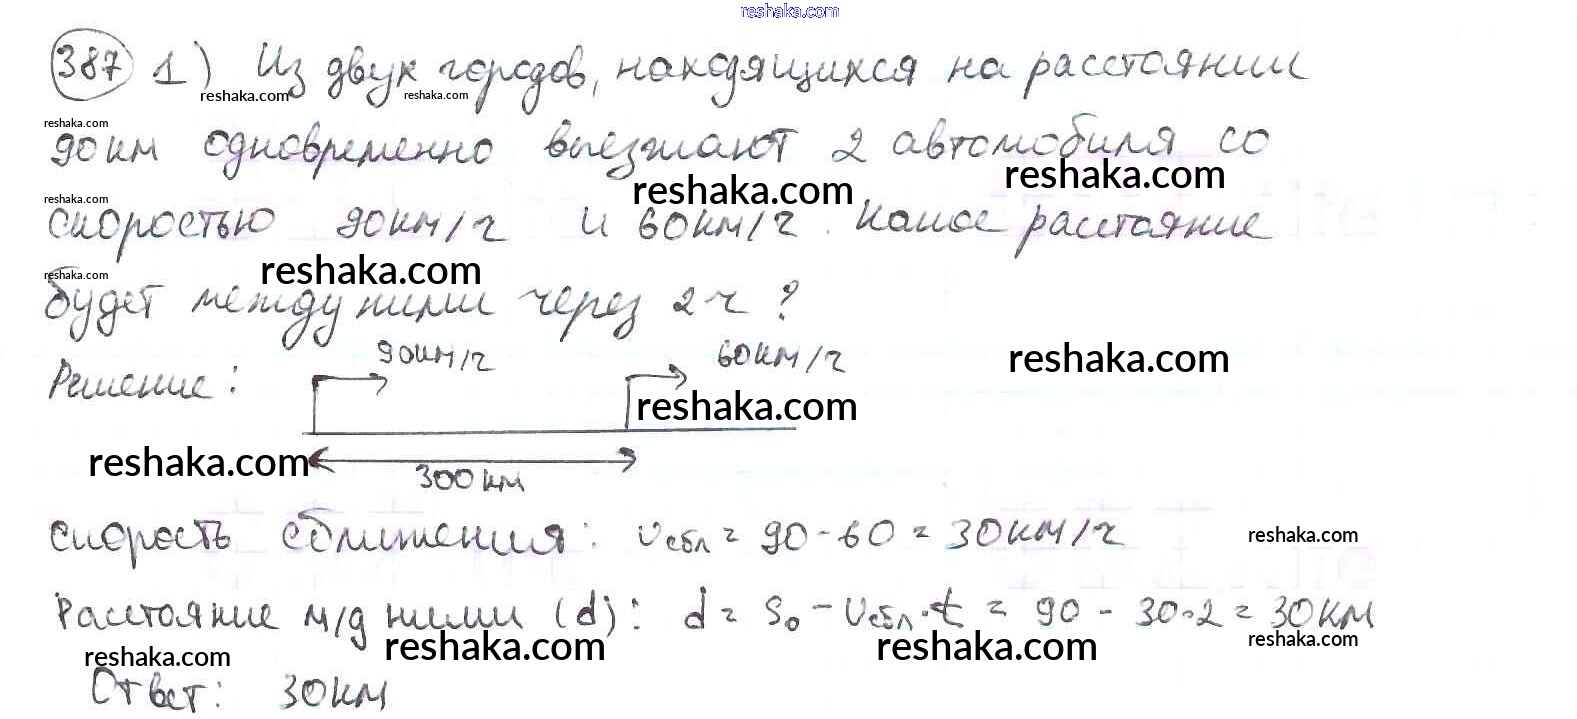 reshaka.com
387 1) Из двух городов, находящихся на расстоянии
reshaka.com reshaka.com
reshaka.com
90 км одновременно выезжают 2 автомобиля со
reshaka.com reshaka.com
reshaka.com
скоростью 90 км/ч и 60 км/ч. Какое расстояние
reshaka.com
reshaka.com
будет между ними через 2 ч ?
90 км/ч 60 км/ч
reshaka.com
Решение:
reshaka.com
reshaka.com
300 км
Скорость сближения: vсбл = 90 - 60 = 30 км/ч
reshaka.com
Расстояние м/д ними (d): d = S₀ - vсбл·t = 90 - 30·2 = 30 км
reshaka.com reshaka.com reshaka.com
reshaka.com
Ответ: 30 км